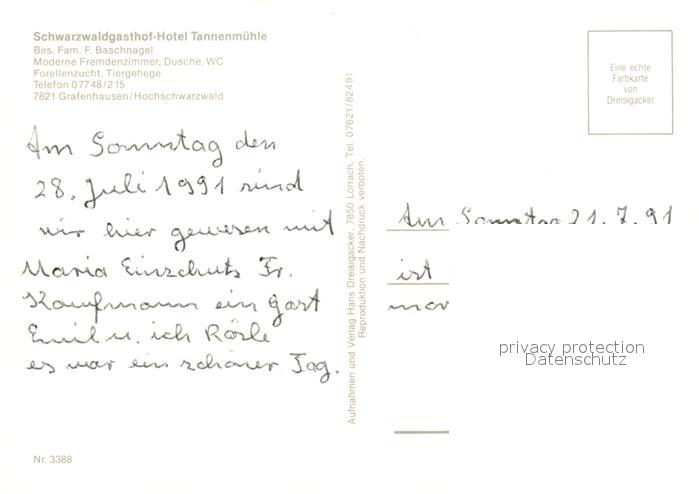 Schwarzwaldgasthof-Hotel Tannenmühle
Bes. Fam. F. Baschnagel
Moderne Fremdenzimmer, Dusche, WC
Forellenzucht, Tiergehege
Telefon 07748/215
7821 Grafenhausen/Hochschwarzwald
Am Sonntag den
28. Juli 1991 sind
wir hier gewesen mit
Maria Einschutz Fr.
Kaufmann ein Gast
Emil u. ich Rösle
es war ein schöner Tag.
Nr. 3388
Aufnahmen und Verlag Hans Dreisigacker, 7850 Lörrach, Tel. 07621/82491
Reproduktion und Nachdruck verboten.
Eine echte
Farbkarte
von
Dreisigacker
Am Sonntag 21. 7. 91
ist
privacy protection
Datenschutz